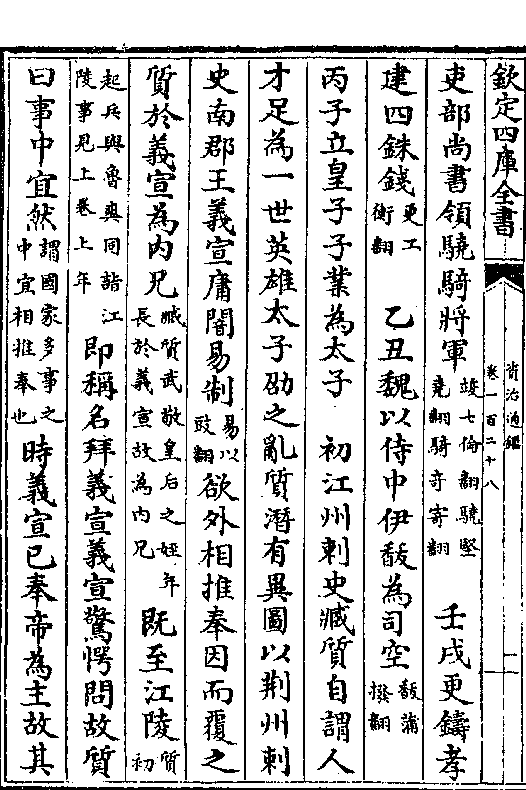 欽定四庫全書
資治通鑑
卷一百二十八
一
吏部尚書領驍騎將軍竣七倫翻驍堅堯翻騎奇寄翻壬戌更鑄孝
建四銖錢更工衡翻乙丑魏以侍中伊馛為司空馛蒲撥翻
丙子立皇子子業為太子初江州刺史臧質自謂人
才足為一世英雄太子劭之亂質潛有異圖以荆州刺
史南郡王義宣庸闇易制易以豉翻欲外相推奉因而覆之
質於義宣為内兄臧質武敬皇后之姪年長於義宣故為内兄既至江陵質初
起兵與魯爽同詣江陵事見上卷上年即稱名拜義宣義宣驚愕問故質
曰事中宜然謂國家多事之中宜相推奉也時義宣已奉帝為主故其